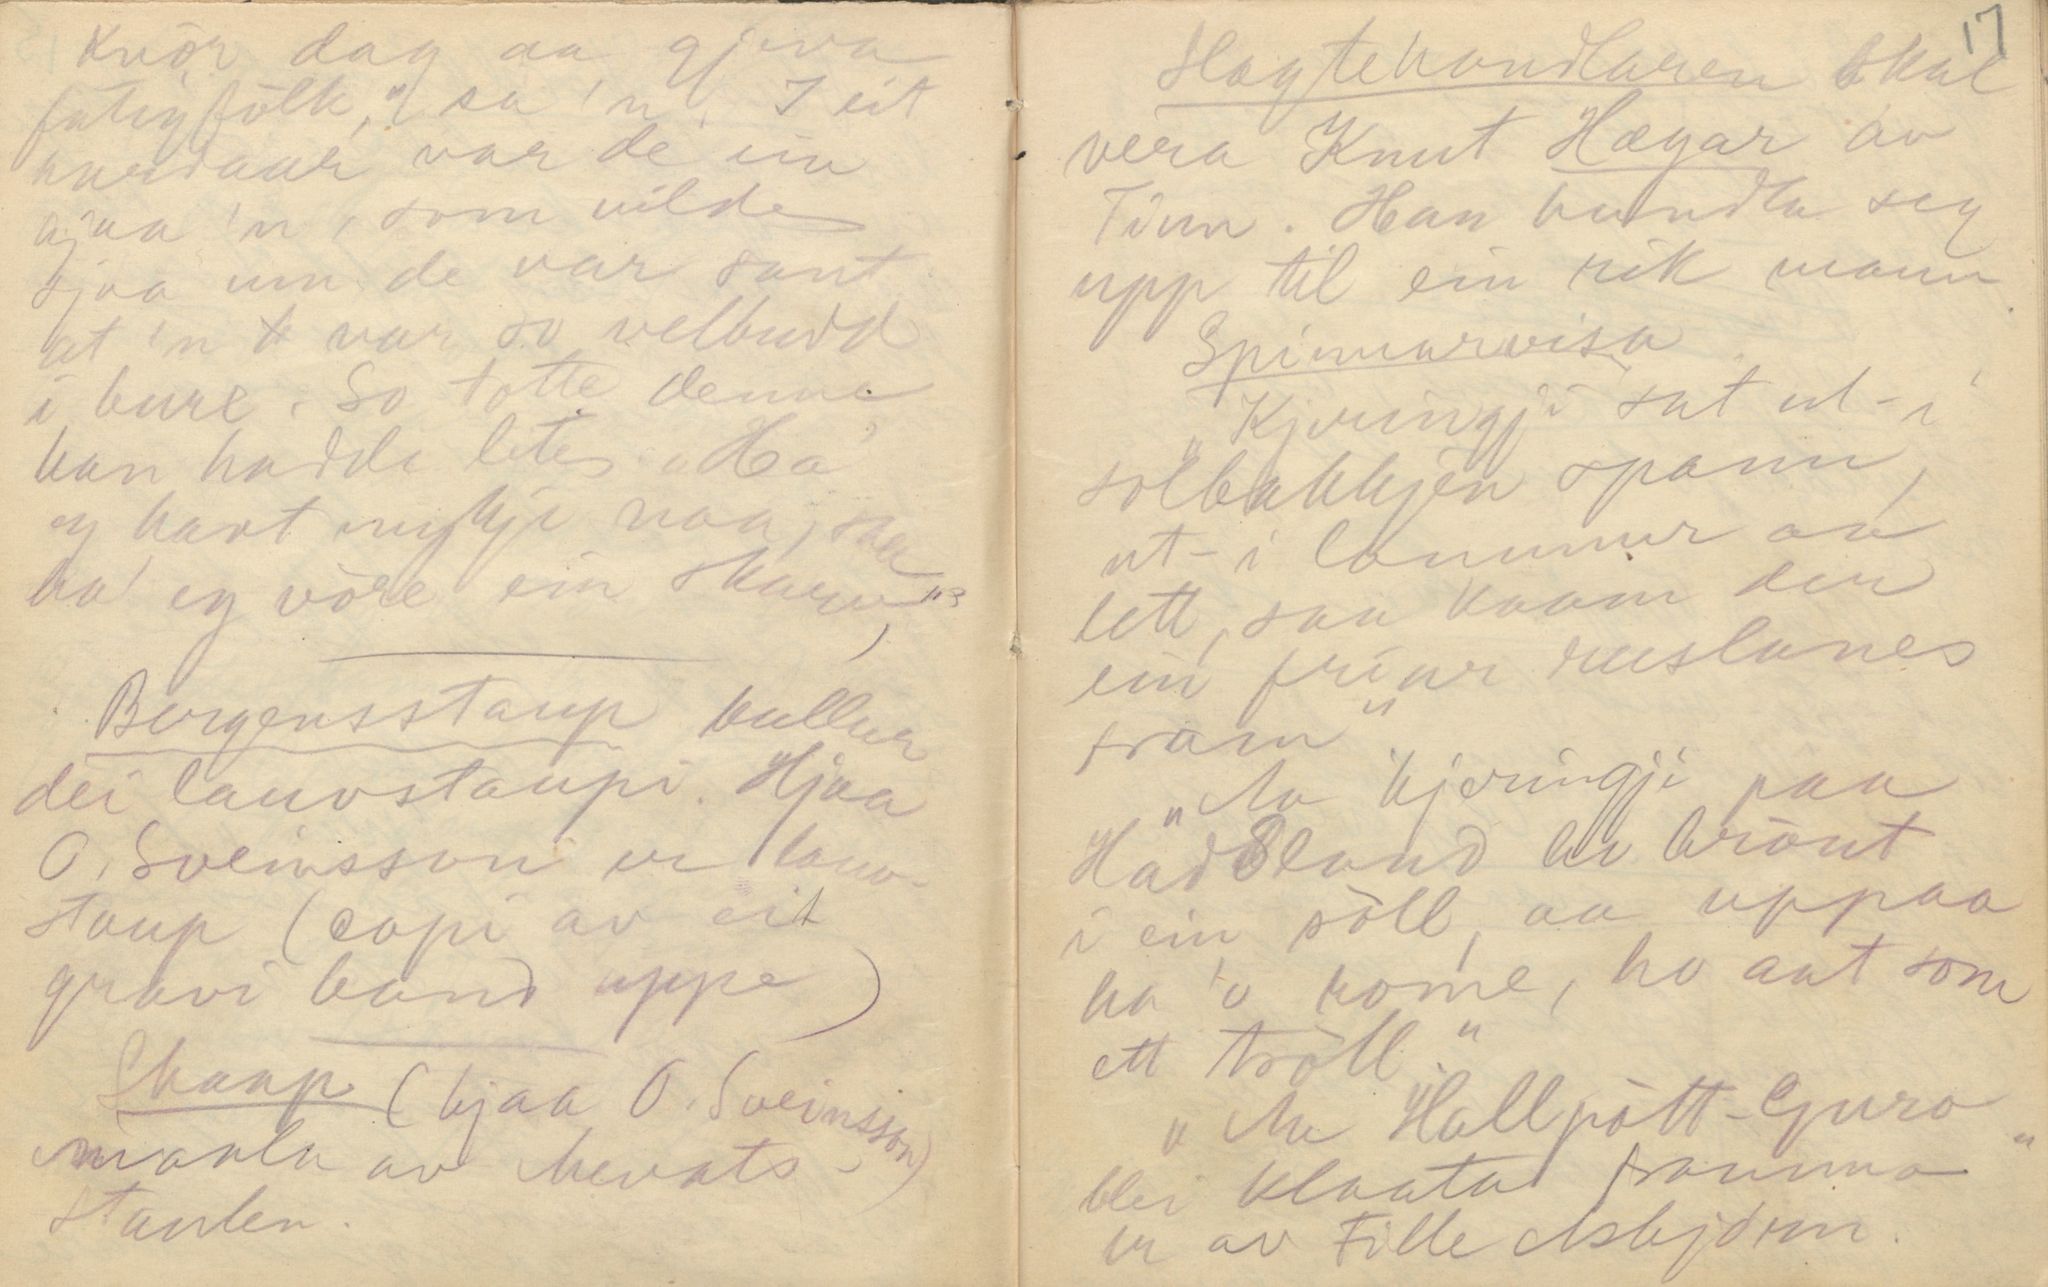 Knòr dag aa gjeva
fatigfolk," sa 'n. I eit
hurdaar var de ein
hjaa 'n, som vilde
sjaa um de var sant
at 'n var so velbudd
i bure. So totte denne
han hadde lite. "Ha
eg havt mykje naa, saa
ha' eg vòre ein skarv,"
Bergensstaup kallar
dei lauvstaupi. Hjaa
O. Sveinsson er lauv-
staup (copi av eit
gravi band uppe)
Skaap (hjaa O. Sveinsson)
maala av Nevats-
staulen.
17
Hegtehandlaren skal
vera Knut Hægar av
Tinn. Han handla seg
upp til ein rik mann.
Spinnarvisa
"Kjeringji sat ut-i
solbakkjen spann,
ut-i lammer av
lett, saa kaam der
ein friar ruslanes
fram"
"Aa kjeringji paa
Hadeland ha brónt
i ein sòll, aa uppaa
ha 'o rome, ho aat som
ett tròll."
"Aa Hallpòtt-Guro
blei klaata framma"
er av Fille Asbjörn.